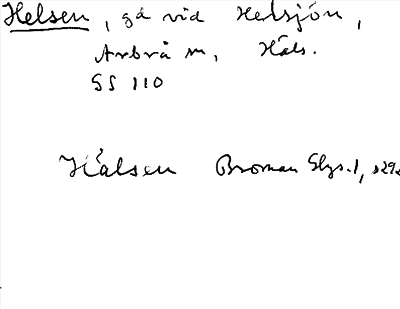 Helsen, gd vid Helsjön,
Arbrå sn, Häls.
SS 110
Hälsen Broman Glys. 1,